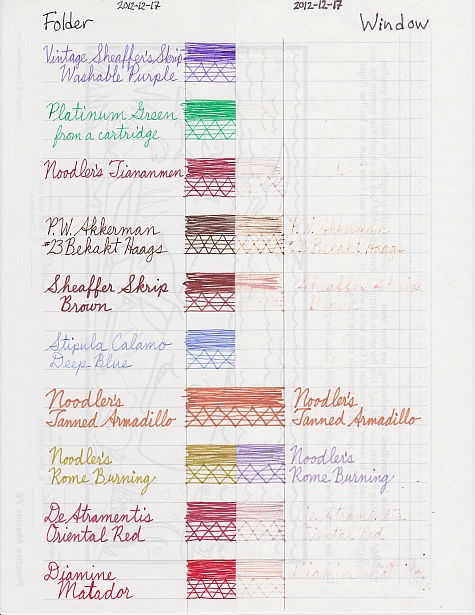 2012-12-17 2012-12-17
Folder Window
Vintage Sheaffer's Skrip
Washable Purple
Platinum Green
from a cartridge
Noodler's Tiananmen
P.W. Akkerman P.W. Akkerman
#23 Bekakt Haags #23 Bekakt Haags
Sheaffer Skrip Sheaffer Skrip
Brown Brown
Stipula Calamo
Deep Blue
Noodler's Noodler's
Tanned Armadillo Tanned Armadillo
Noodler's Noodler's
Rome Burning Rome Burning
De Atramentis De Atramentis
Oriental Red Oriental Red
Diamine
Matador